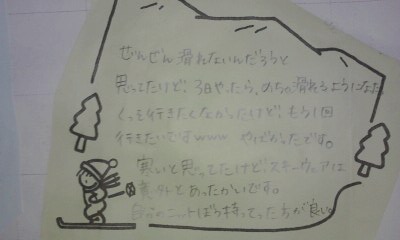 ぜんぜん滑れないんだろうと
思ってたけど、3日やったら、めちゃ滑れるようになった
行きたくなかったけど、もう1回
行きたいですwww やばかったです。
寒いと思ってたけど、スキーウェアは
意外とあったかいです。
自分のニットぼう持ってった方が良い。